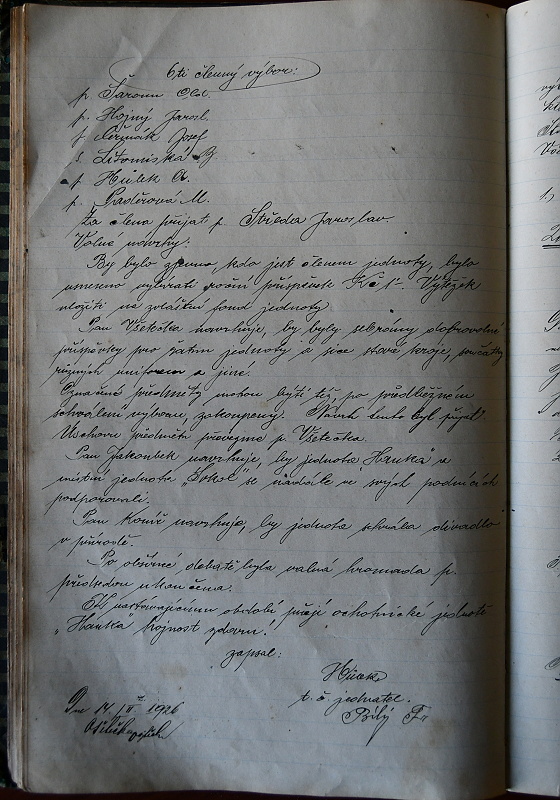 6ti členný výbor:
p. Šároun Old.
p. Hojný Jarosl.
p. Čermák Josef
s. Litomiská B.
p. Hůlek A.
p. Paděrová M.
Za člena přijat p. Středa Jaroslav.
Volné návrhy:
By bylo zjevno, kdo jest členem jednoty, bylo
usneseno vybírati roční příspěvek Kč 1'-. Výtěžek
uložiti na zvláštní fond jednoty
Pan Všetečka navrhuje, by byly sebrány dobrovolné
příspěvky pro šatnu jednoty a sice staré kroje, součástky
různých uniforem a jiné.
Označené předměty mohou býti též, po předběžném
schválení výboru, zakoupeny. Návrh tento byl přijat.
Úschovu předmětů převezme p. Všetečka.
Pan Jakoubek navrhuje, by jednota "Hanka" a
místní jednota "Sokol" se nadále ve svých podnicích
podporovali.
Pan Koníř navrhuje, by jednota sehrála divadlo
v přírodě.
Po obšírné debatě byla valná hromada p.
předsedou ukončena.
K nastávajícímu období přeji ochotnické jednotě
"Hanka" hojnost zdaru!
zapsal:
t. č. jednatel.
Bílý Fr
Dne 14/II 1926